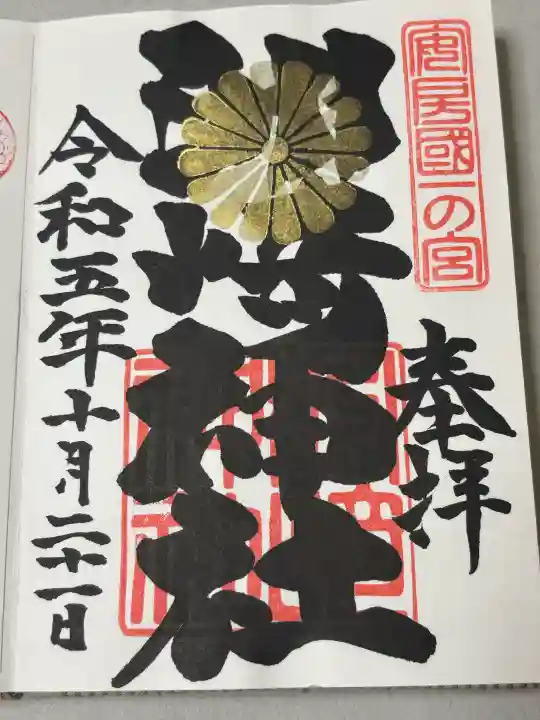 安房國一の宮
奉拝
洲崎神社
令和五年十月二十一日